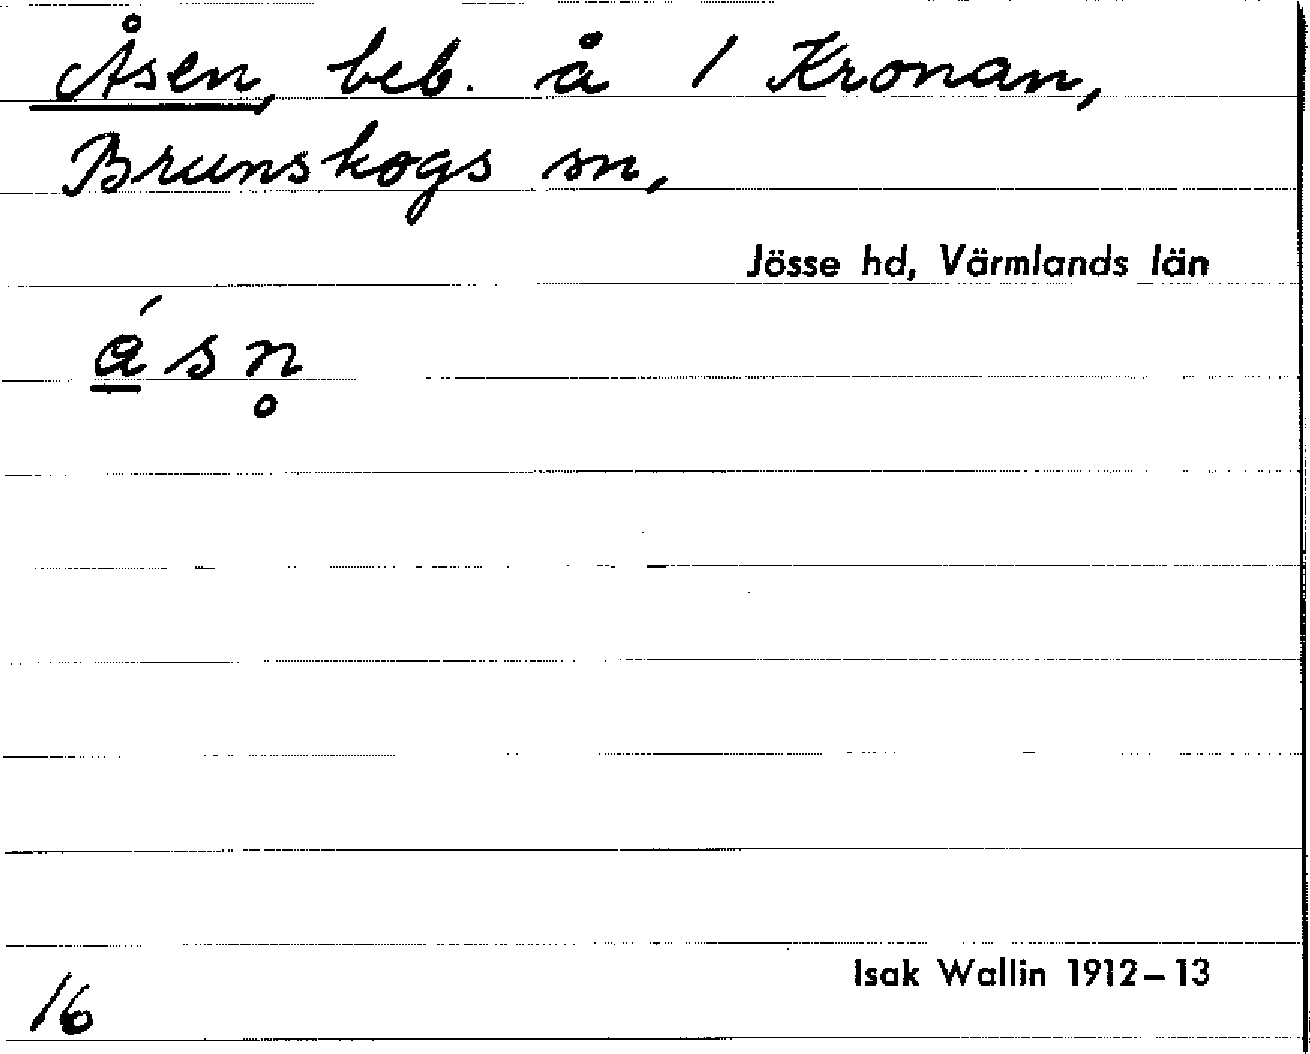 Åsen, beb. å 1 Kronan,
Brunskogs sn,
Jösse hd, Värmlands län
á̲ s n̥
16
Isak Wallin 1912–13